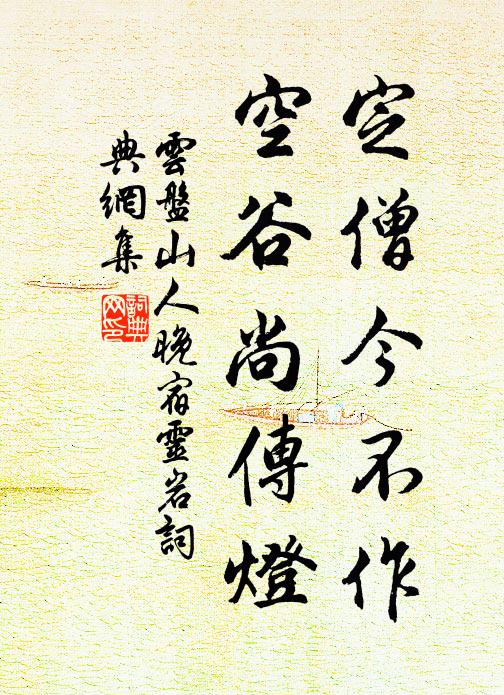 定僧今不作
空谷尚傳燈
雲盤山人晚宿靈岩詞
典網集
詞典
网印